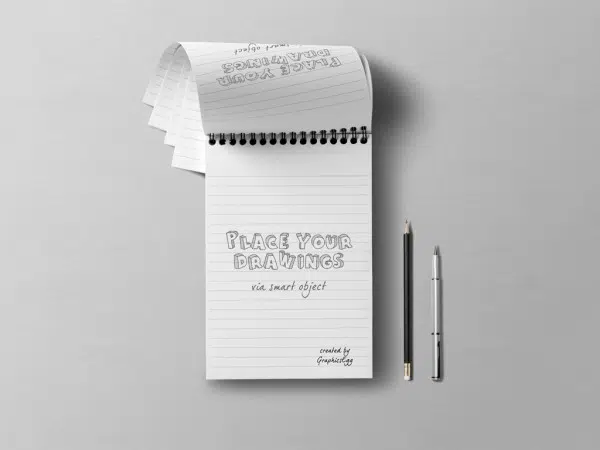 PLACE YOUR
DRAWINGS
smart object
PLACE YOUR
DRAWINGS
via smart object
created by
GraphicsEgg